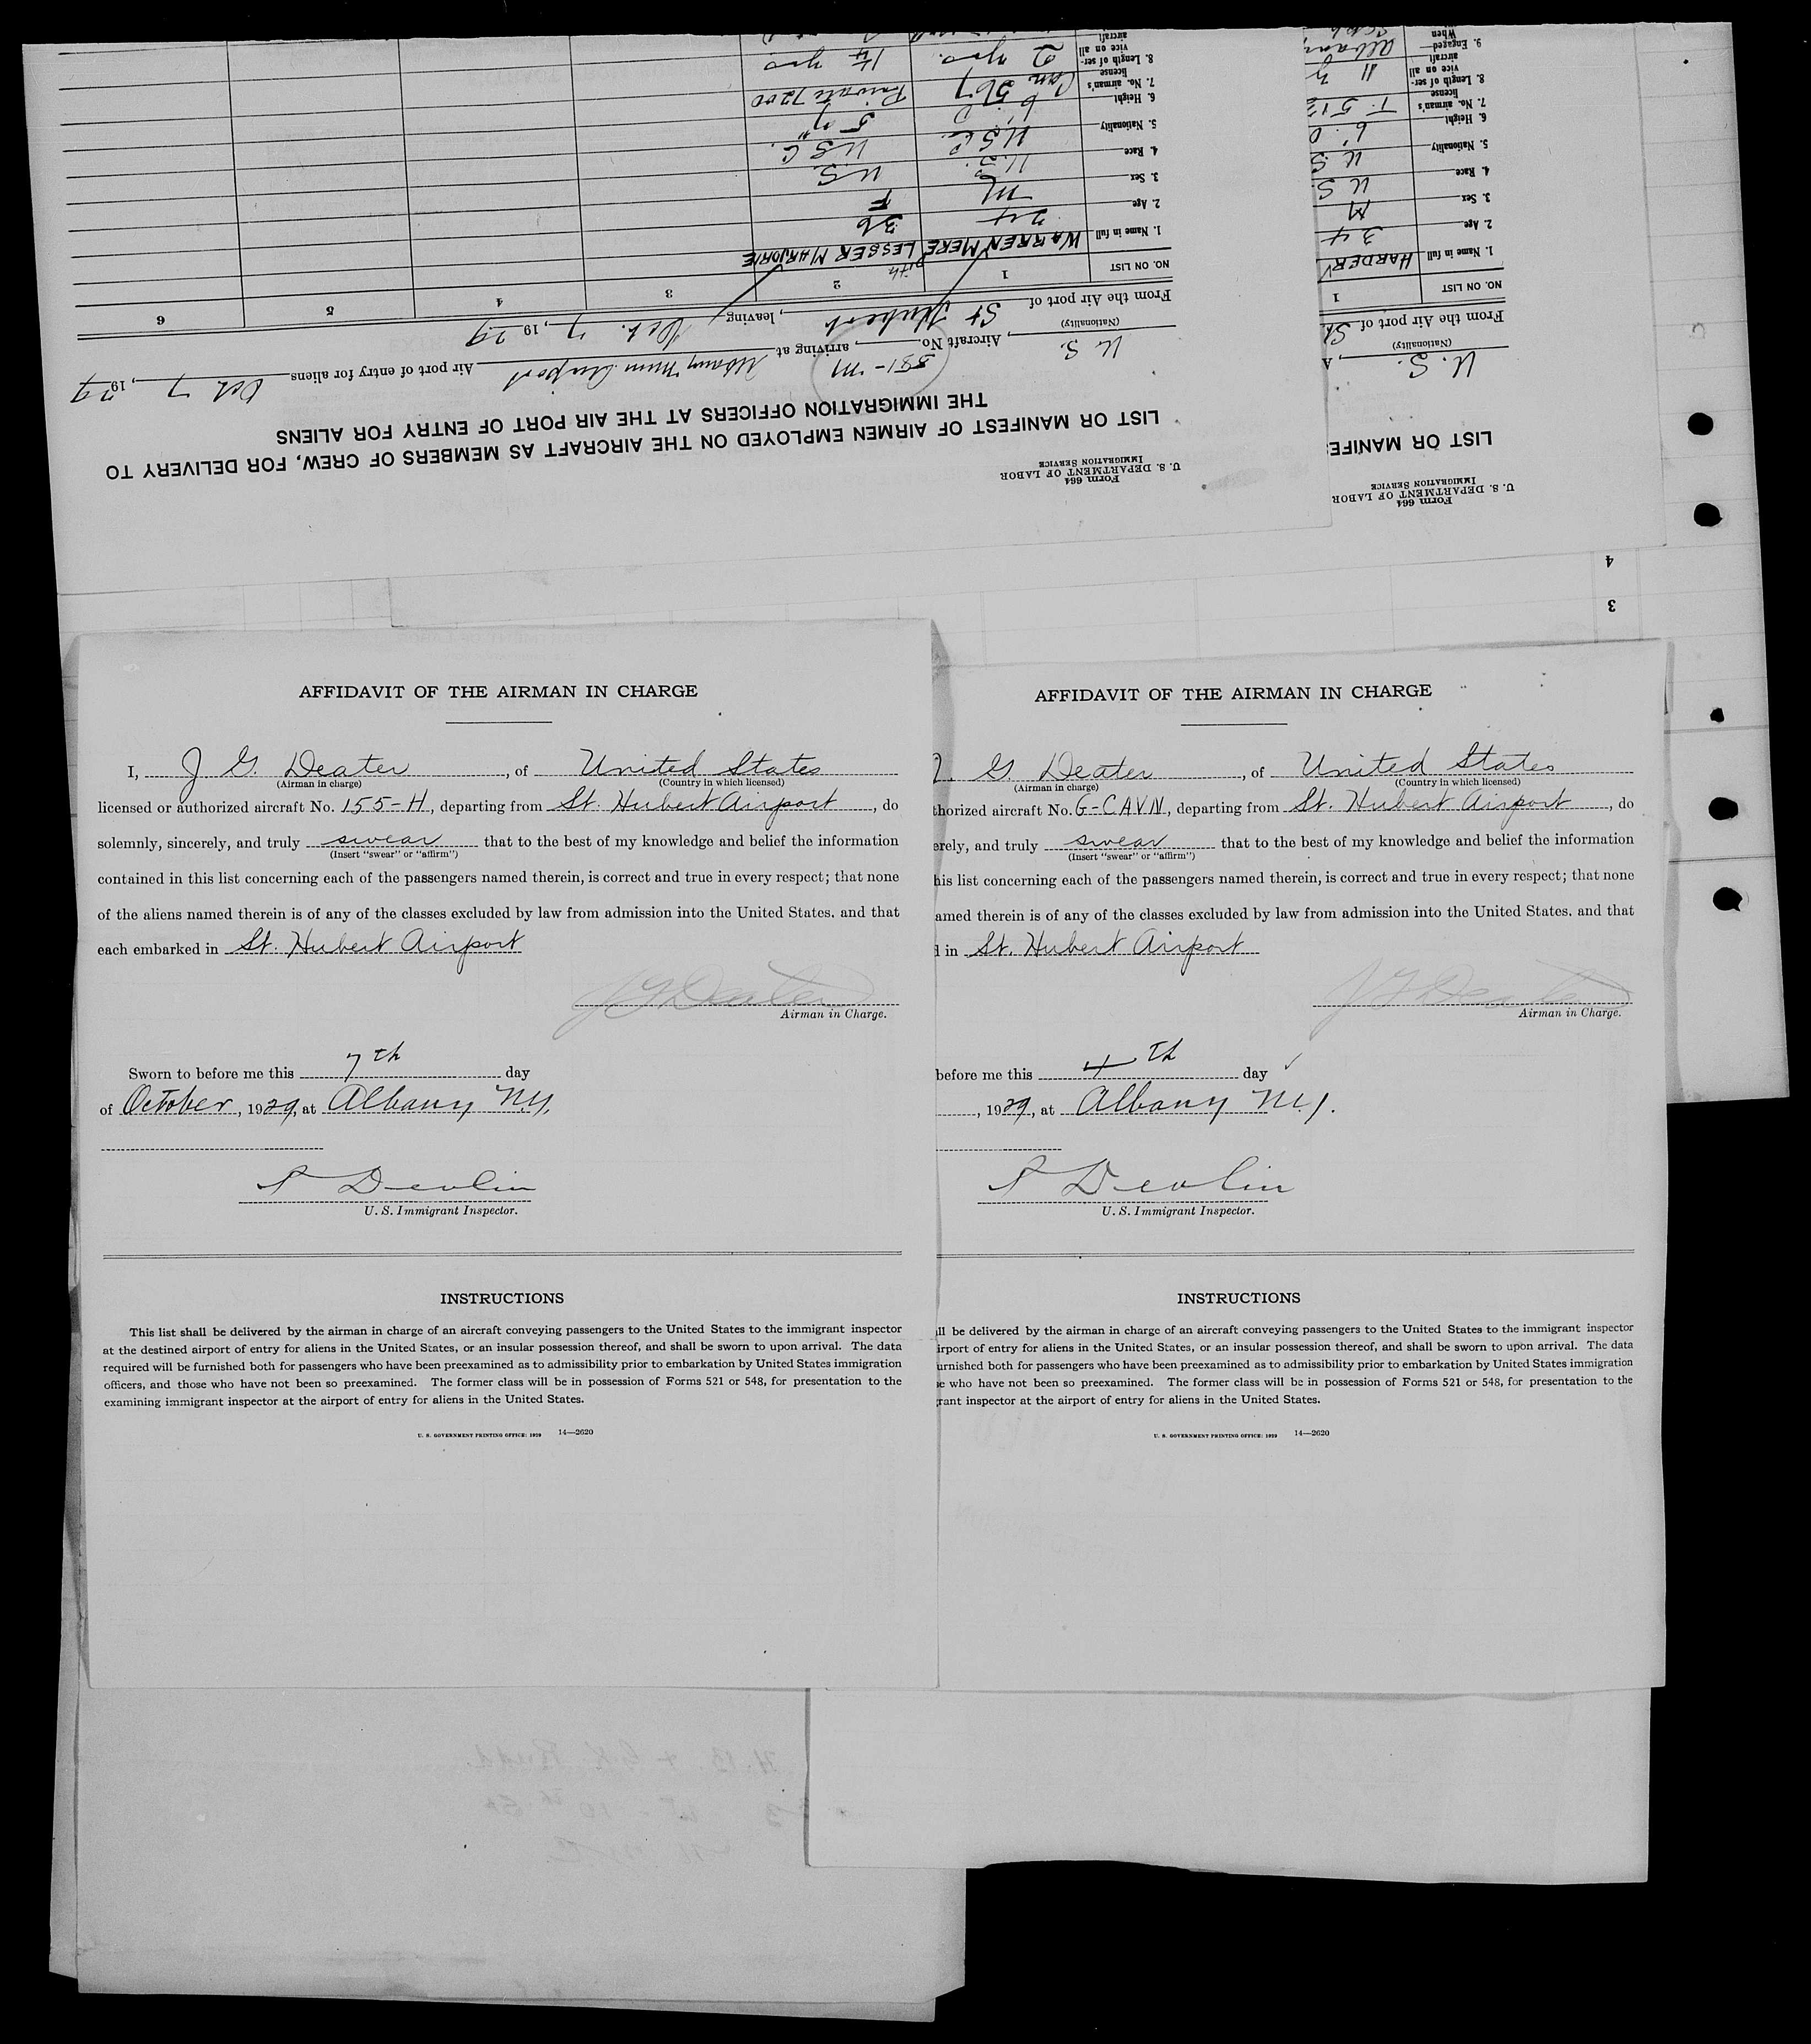 AFFIDAVIT OF THE AIRMAN IN CHARGE
I, J G. Deater, of United States
(Airman in charge) (Country in which licensed)
licensed or authorized aircraft No. 155-H, departing from St. Hubert Airport, do
solemnly, sincerely, and truly swear that to the best of my knowledge and belief the information
(Insert "swear" or "affirm")
contained in this list concerning each of the passengers named therein, is correct and true in every respect; that none
of the aliens named therein is of any of the classes excluded by law from admission into the United States. and that
each embarked in St. Hubert Airport
J G Deater
Airman in Charge.
Sworn to before me this 7th day
of October, 1929, at Albany N.Y.
Devlin
U. S. Immigrant Inspector.
INSTRUCTIONS
This list shall be delivered by the airman in charge of an aircraft conveying passengers to the United States to the immigrant inspector
at the destined airport of entry for aliens in the United States, or an insular possession thereof, and shall be sworn to upon arrival. The data
required will be furnished both for passengers who have been preexamined as to admissibility prior to embarkation by United States immigration
officers, and those who have not been so preexamined. The former class will be in possession of Forms 521 or 548, for presentation to the
examining immigrant inspector at the airport of entry for aliens in the United States.
U. S. GOVERNMENT PRINTING OFFICE: 1929 14—2620
AFFIDAVIT OF THE AIRMAN IN CHARGE
G. Deater, of United States
(Airman in charge) (Country in which licensed)
thorized aircraft No. G-CAVN, departing from St. Hubert Airport, do
erely, and truly swear that to the best of my knowledge and belief the information
(Insert "swear" or "affirm")
his list concerning each of the passengers named therein, is correct and true in every respect; that none
amed therein is of any of the classes excluded by law from admission into the United States. and that
d in St. Hubert Airport
J G Deater
Airman in Charge.
before me this 4th day
, 1929, at Albany N.Y.
Devlin
U. S. Immigrant Inspector.
INSTRUCTIONS
ll be delivered by the airman in charge of an aircraft conveying passengers to the United States to the immigrant inspector
irport of entry for aliens in the United States, or an insular possession thereof, and shall be sworn to upon arrival. The data
urnished both for passengers who have been preexamined as to admissibility prior to embarkation by United States immigration
e who have not been so preexamined. The former class will be in possession of Forms 521 or 548, for presentation to the
rant inspector at the airport of entry for aliens in the United States.
U. S. GOVERNMENT PRINTING OFFICE: 1929 14—2620
4
3
Form 664
U. S. DEPARTMENT OF LABOR
IMMIGRATION SERVICE
LIST OR MANIFEST OF AIRMEN EMPLOYED ON THE AIRCRAFT AS MEMBERS OF CREW, FOR DELIVERY TO
THE IMMIGRATION OFFICERS AT THE AIR PORT OF ENTRY FOR ALIENS
U. S., Aircraft No. 581-M, arriving at Albany Mun. Airport Air port of entry for aliens Oct 7, 1929
(Nationality)
From the Air port of St Hubert, leaving Oct. 7, 1929
NO. ON LIST 1 2 3 4 5 6
1. Name in full WARREN MEREDITH LESSER MARJORIE
2. Age 24 36
3. Sex M F
4. Race U.S. U.S.
5. Nationality U.S.C. U.S.C.
6. Height 6' 0 5' 7"
7. No. airman's license 567 Private 7200
8. Length of service on all aircraft 2 yrs. 1 1/4 yrs
Form 664
U. S. DEPARTMENT OF LABOR
IMMIGRATION SERVICE
LIST OR MANIFES
U. S., A
(Nationality)
From the Air port of St
NO. ON LIST 1
1. Name in full HARDER
2. Age 34
3. Sex M
4. Race U S.
5. Nationality U S
6. Height 6' 0
7. No. airman's license T. 512
8. Length of service on all aircraft 11 y
9. Engaged— Alban
When Sept